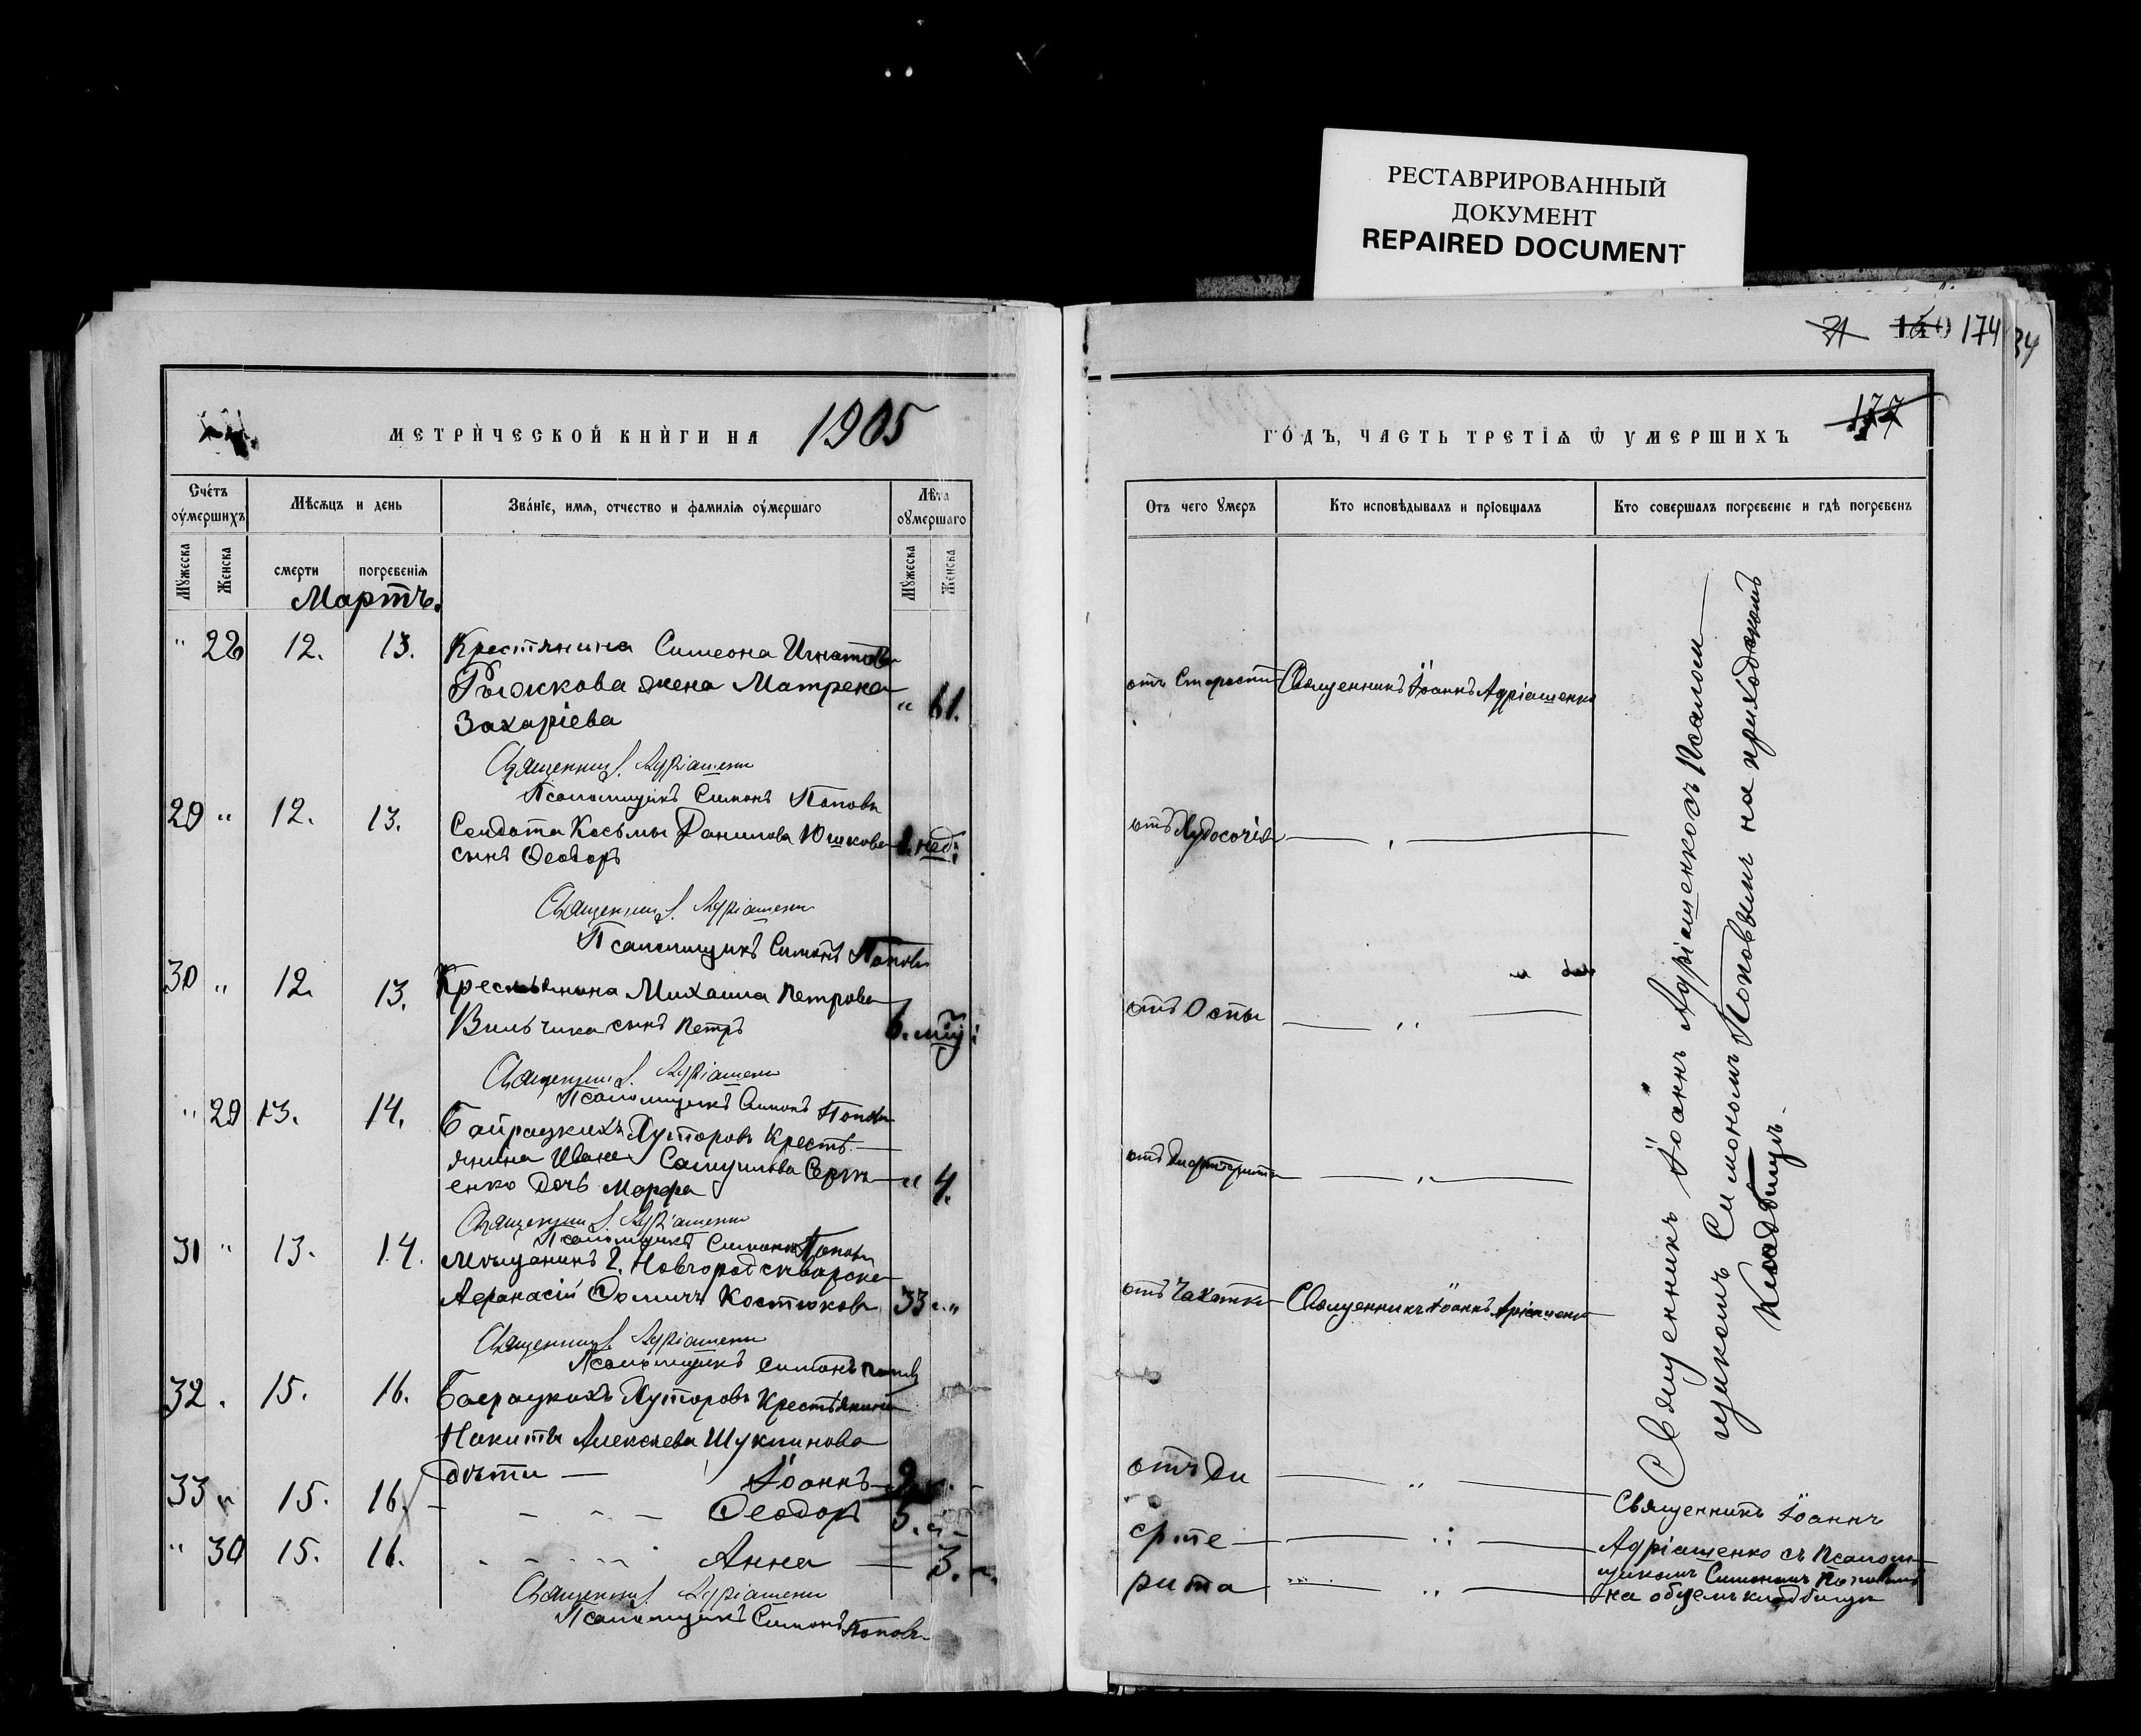 РЕСТАВРИРОВАННЫЙ
ДОКУМЕНТ
REPAIRED DOCUMENT
174
34
177
МЕТРИЧЕСКОЙ КНИГИ НА 1905
Счетъ оумершихъ
Мѣсяцъ и день
Званіе, имя, отчество и фамилія оумершаго
Лѣта оумершаго
Мужеска
Женска
смерти
погребенія
Мужеска
Женска
Мартъ.
" 28 12. 13. Крестянина Симеона Игнатова
Рыжкова жена Матрена " 61.
Захаріева
Священник І. Адріашенко
Псаломщикъ Симонъ Поповъ
29 " 12. 13. Солдата Косьмы Данилова Юшкова нед.
сынъ Ѳеодоръ
Священник І. Адріашенко
Псаломщикъ Симонъ Поповъ
30 " 12. 13. Крестьянина Михаила Петрова
Вильчика сынъ Петръ 6.
Священник І. Адріашенко
Псаломщикъ Симонъ Поповъ
" 29 13. 14. Байрацкихъ Хуторовъ Кресть
янина Ивана Самуилова
енко дочь Марфа " 4.
Священник І. Адріашенко
Псаломщикъ Симонъ Поповъ
31 " 13. 14. Мѣщанинъ г. Новгородсѣверска
Афанасій Ѳомичъ Костюковъ 33 "
Священник І. Адріашенко
Псаломщикъ Симонъ Поповъ
32 . 15. 16. Баерацкихъ Хуторовъ Крестьянина
Никиты Алексѣева Шуклинова
дѣти — Іоаннъ
33 " 15. 16. Ѳеодоръ 5.
" 30 15. 16. Анна 3.
Священник І. Адріашенко
Псаломщикъ Симонъ Поповъ
ГОДЪ, ЧАСТЬ ТРЕТІЯ Ѿ УМЕРШИХЪ
Отъ чего умеръ
Кто исповѣдывалъ и пріобщалъ
Кто совершалъ погребеніе и гдѣ погребенъ
отъ Старости Священникъ Іоаннъ Адріашенко
отъ Худосочія "
отъ Оспы "
отъ Дифтерита "
отъ Чахотки Священникъ Іоаннъ
отъ Ди "
фте "
рита "
Священникъ Іоаннъ Адріашенко съ Псалом
щикомъ Симономъ Поповымъ на приходскомъ
Кладбищѣ.
Священникъ Іоаннъ
Адріашенко съ Псалом
щикомъ Симономъ Поповымъ
на общемъ кладбищѣ